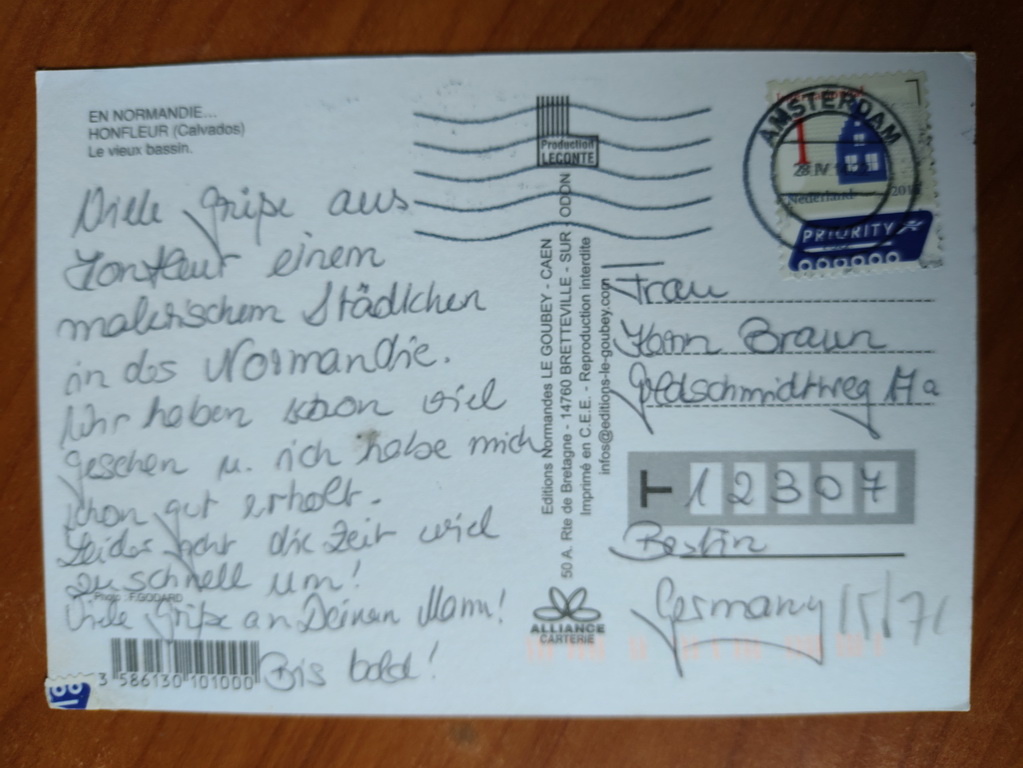 EN NORMANDIE...
HONFLEUR (Calvados)
Le vieux bassin.
Viele Grüße aus
Honfleur einem
malerischem Städtchen
in der Normandie.
Wir haben schon viel
gesehen u. ich habe mich
schon gut erholt.
Leider geht die Zeit viel
zu schnell um!
Photo : F.GODARD
Viele Grüße an Deinen Mann!
Bis bald!
3 586130 101000
Production
LECONTE
Editions Normandes LE GOUBEY - CAEN
50 A. Rte de Bretagne - 14760 BRETTEVILLE - SUR - ODON
Imprimé en C.E.E. - Reproduction interdite
infos@editions-le-goubey.com
ALLIANCE
CARTERIE
AMSTERDAM
1
Nederland
PRIORITY
Frau
Braun
Goldschmidtweg
T 12307
Berlin
Germany 15/71